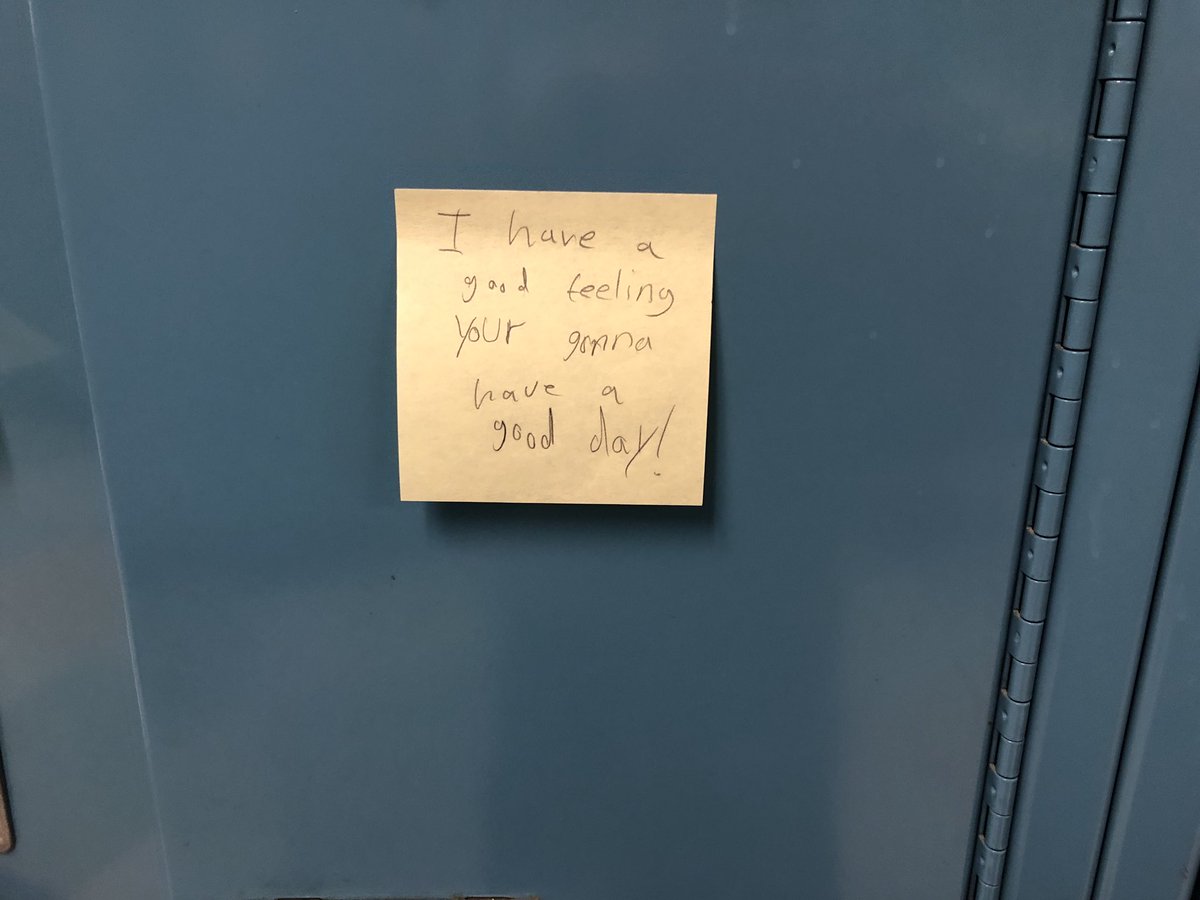 I have a
good feeling
your gonna
have a
good day!